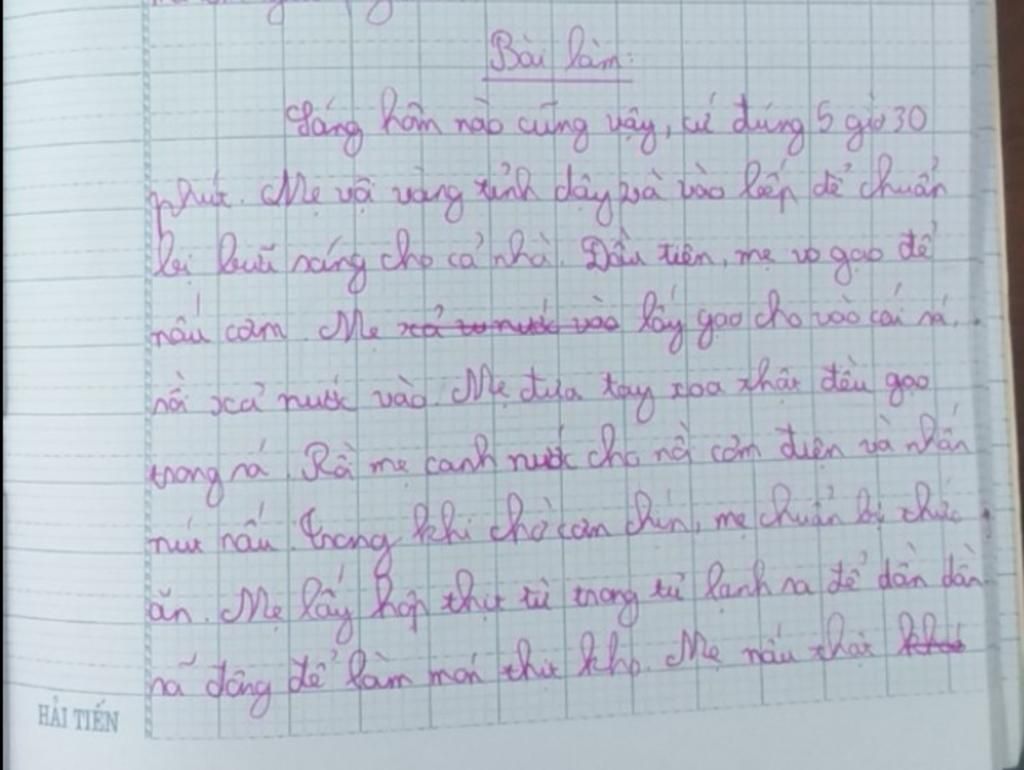 Bài làm:
Sáng hôm nào cũng vậy, cứ đúng 5 giờ 30
phút. Mẹ vội vàng tỉnh dậy và vào bếp để chuẩn
bị buổi sáng cho cả nhà. Đầu tiên, mẹ vo gạo để
nấu cơm. Mẹ xả nước vào lấy gạo cho vào cái rá,
rồi xả nước vào. Mẹ đưa tay xoa thật đều gạo
trong rá. Rồi mẹ canh nước cho nồi cơm điện và nhấn
nút nấu. Trong khi chờ cơm chín, mẹ chuẩn bị thức
ăn. Mẹ lấy hộp thịt từ trong tủ lạnh ra để dần dần
rã đông để làm món thịt kho. Mẹ nấu thật
HẢI TIẾN